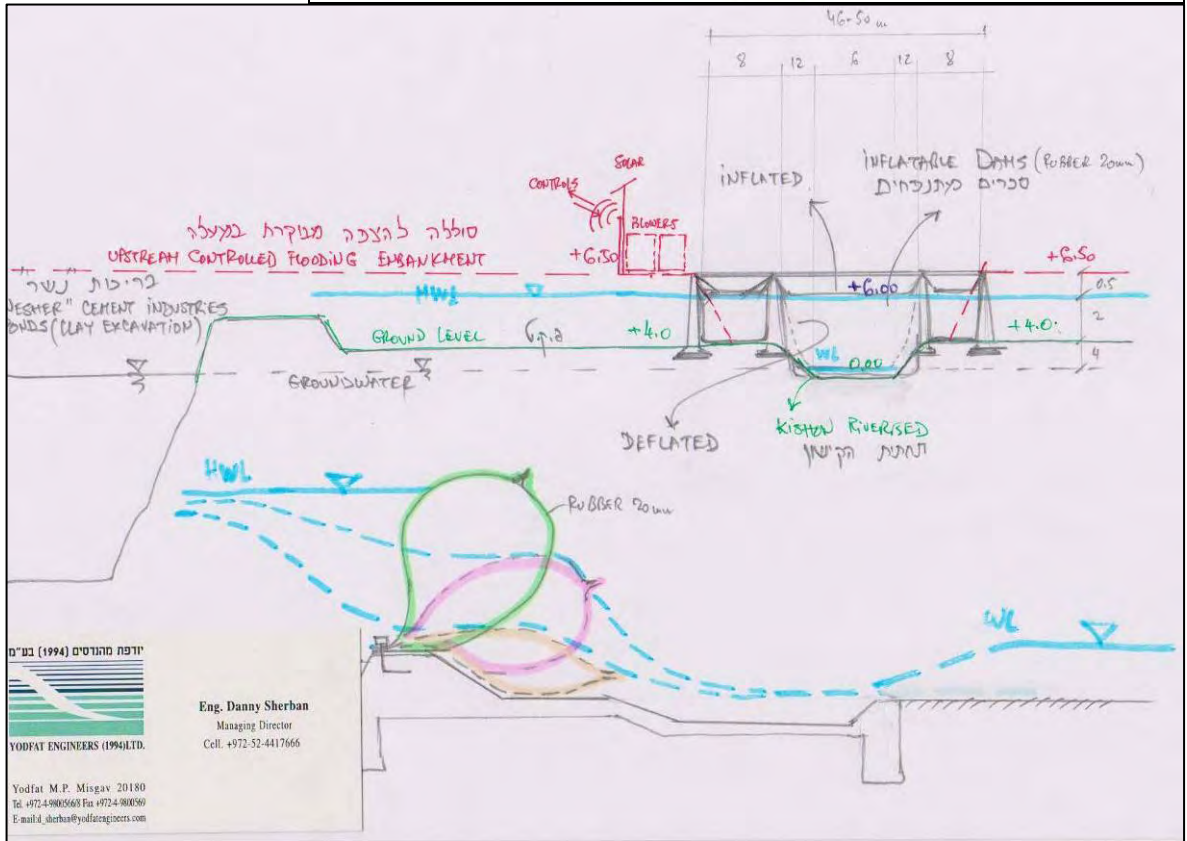 46-50 m
8 12 6 12 8
SOLAR
CONTROLS
BLOWERS
INFLATED
INFLATABLE DAMS (RUBBER 20mm)
סכרים מתנפחים
סוללה להצפה מבוקרת במעלה
UPSTREAM CONTROLLED FLOODING EMBANKMENT
+6.50
+6.50
בריכות נשר
NESHER" CEMENT INDUSTRIES
PONDS (CLAY EXCAVATION)
HWL
+6.00
0.5
GROUND LEVEL
+4.0
+4.0
2
WL
0.00
4
GROUNDWATER
DEFLATED
KISHON RIVERBED
תחתית הקישון
HWL
RUBBER 20mm
WL
יודפת מהנדסים (1994) בע"מ
YODFAT ENGINEERS (1994)LTD.
Eng. Danny Sherban
Managing Director
Cell. +972-52-4417666
Yodfat M.P. Misgav 20180
Tel. +972-4-9800566/8 Fax +972-4-9800569
E-mail:d_sherban@yodfatengineers.com